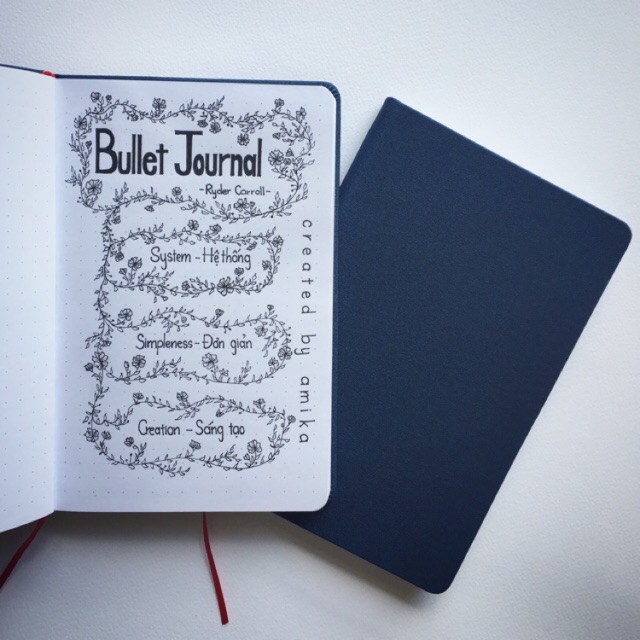 Bullet Journal
-Ryder Carroll-
System - Hệ thống
Simpleness - Đơn giản
Creation - Sáng tạo
created by amika